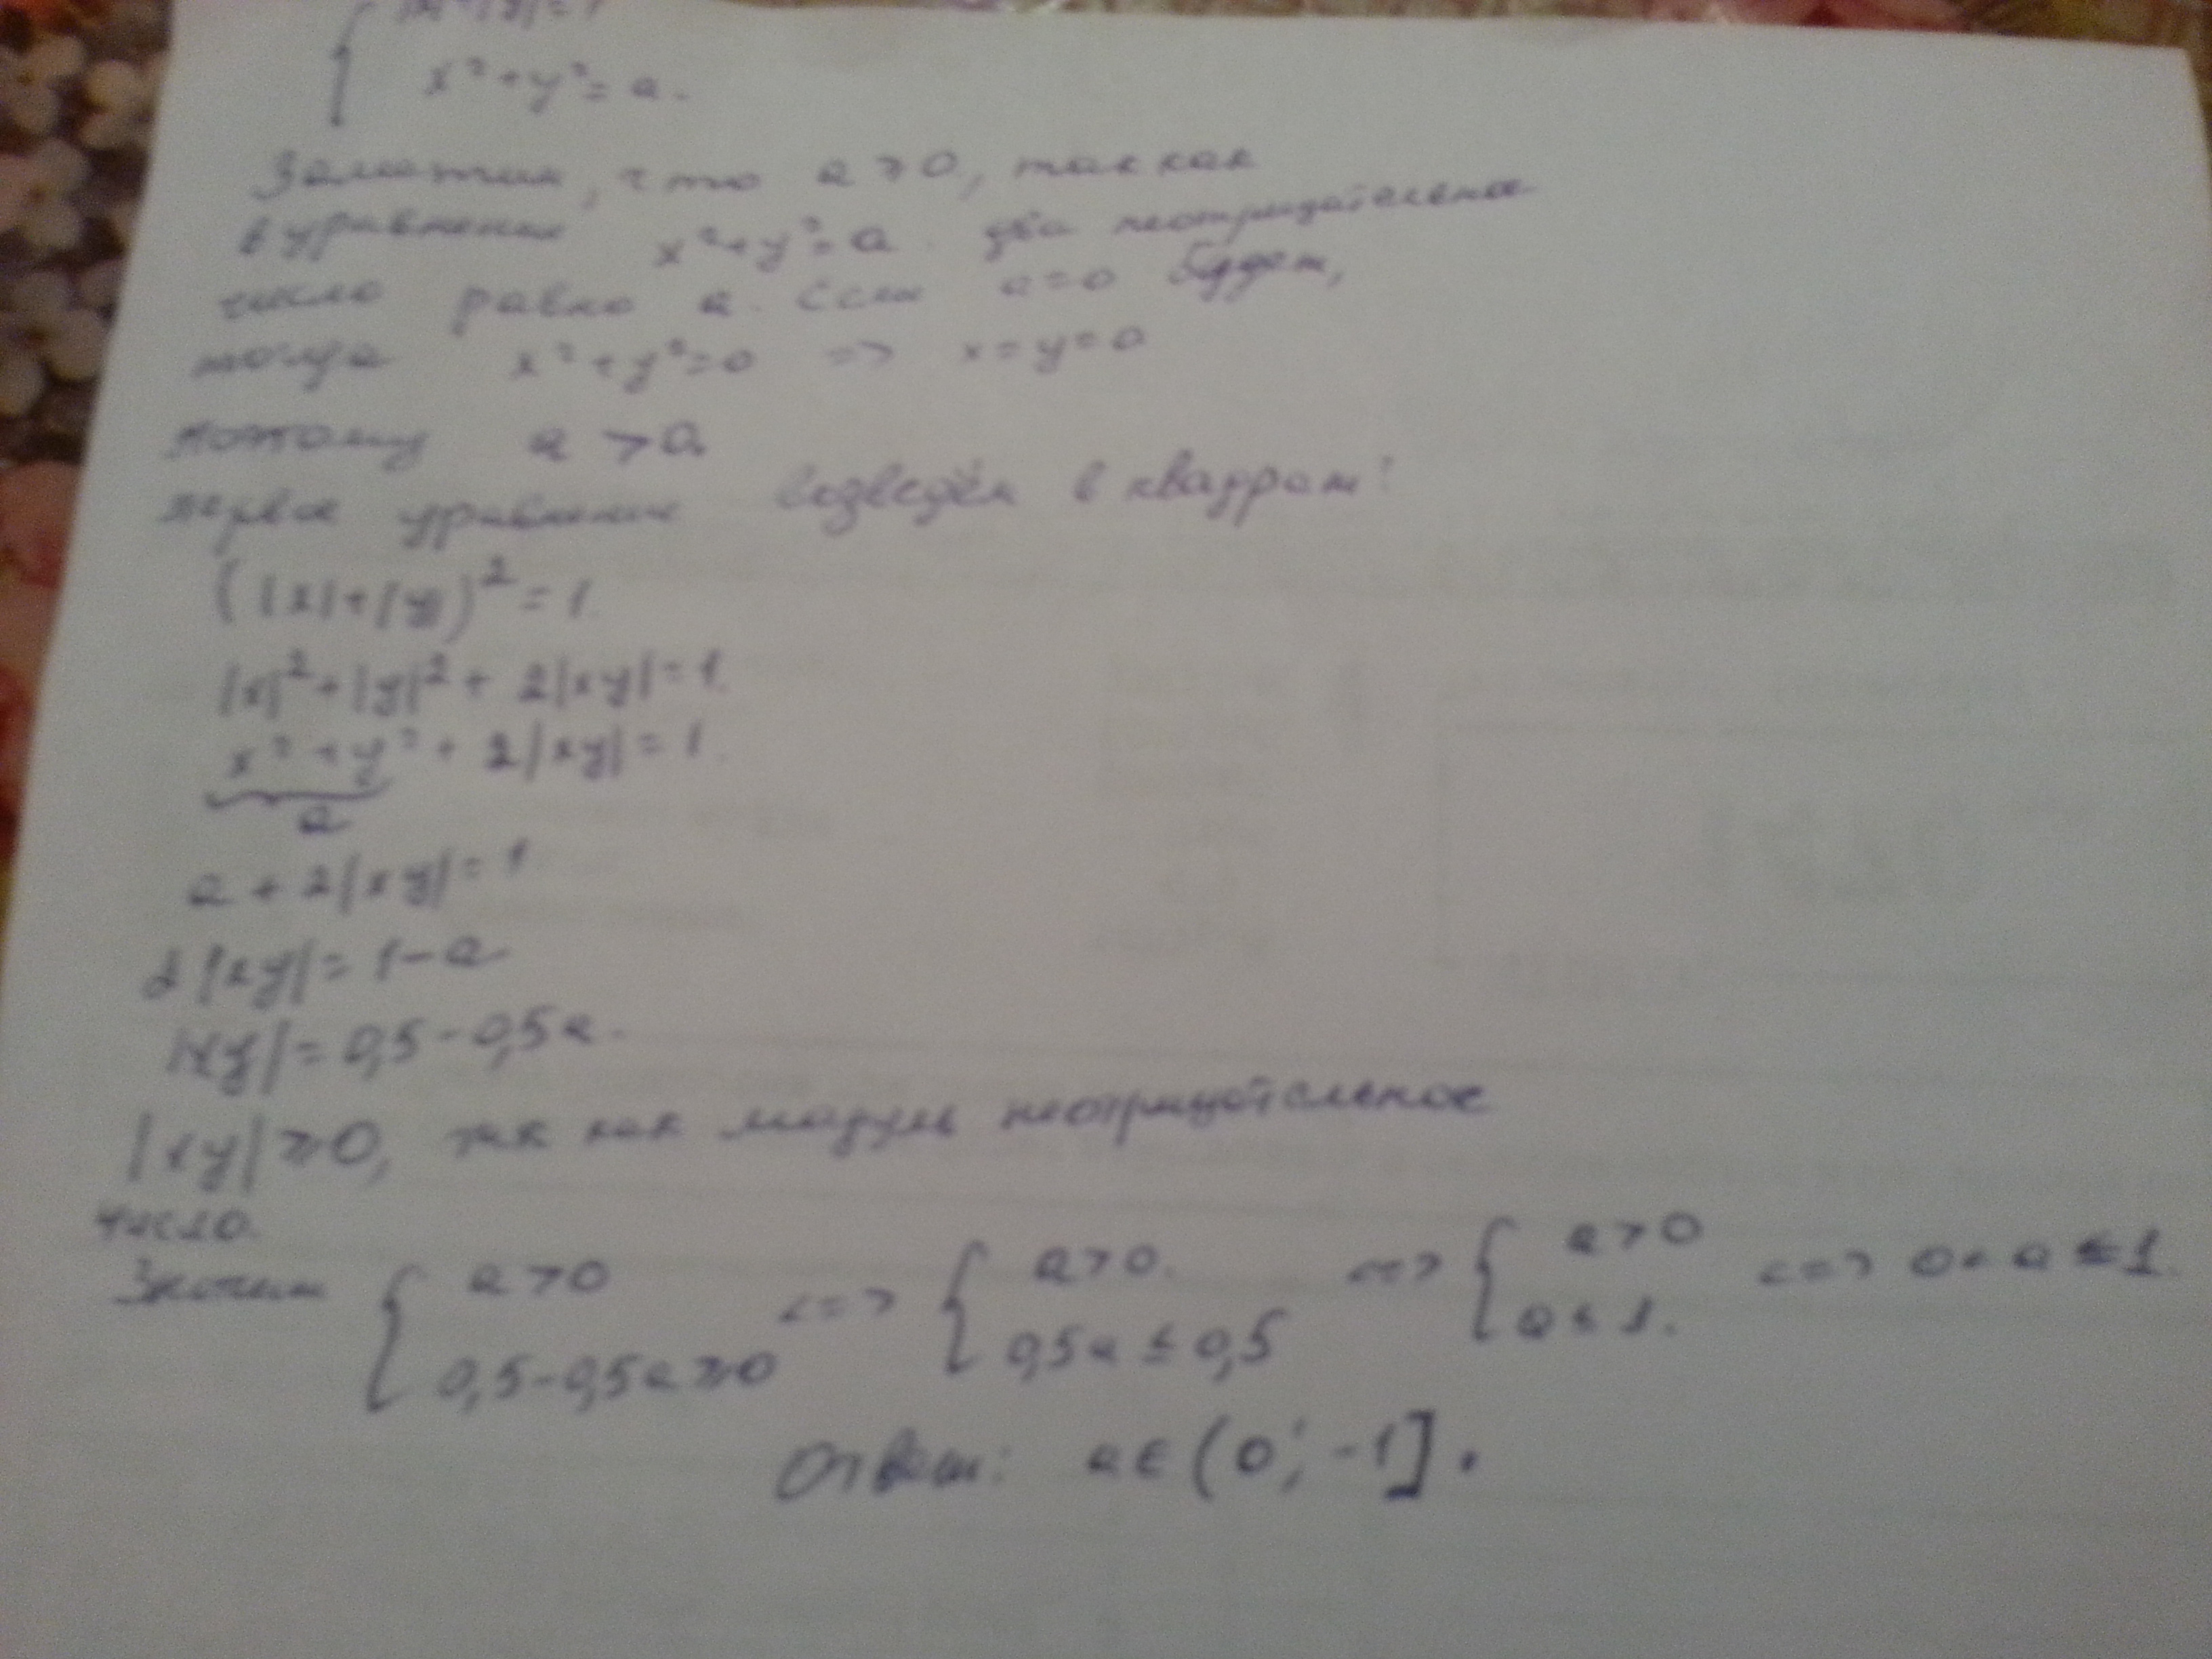 |x|+|y|=1
x²+y²=a.
Заметим, что a≥0, так как
в уравнении x²+y²=a. два неотрицательное
число равно a. Если a=0 будет,
тогда x²+y²=0 => x=y=0
поэтому a>0.
первое уравнение возведём в квадрат:
(|x|+|y|)²=1.
|x|²+|y|²+2|xy|=1.
x²+y²+2|xy|=1.
a
a+2|xy|=1
2|xy|=1-a
|xy|=0,5-0,5a.
|xy|≥0, так как модуль неотрицательное
число.
Значит { a>0 <=> { a>0. <=> { a>0 <=> 0<a≤1.
0,5-0,5a≥0 0,5a≤0,5 a≤1.
Ответ: a∈(0;-1].